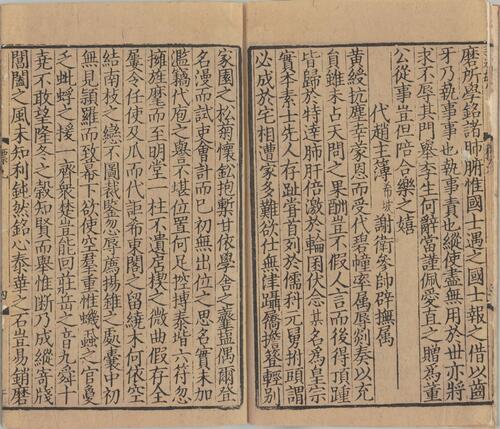 磨所學銘諸肺腑惟國士遇之國士報之借以齒
牙乃執事事也執事責也縱使盡無用於世亦將
求不辱其門舉李生何辭當謹佩愛直之贈爲董
公從事豈但陪合樂之嬉
代趙主簿希坡謝衛參帥辟撫属
黃綬抗塵幸蒙恩而受代碧幢率属辱剡奏以充
負雖未占天問之果酬豈不假人言而後得頂踵
皆歸於特達肺肝倍激於輪囷伏念某名爲皇宗
實本素士先人存趾甞首列於儒科元舅拊頭謂
必成於宅相遭家多難欲仕無津躡僑擔簦輕别
家園之松菊懷鈆抱槧甘依學舍之虀鹽偶爾登
名漫而試吏會計而已初無出位之思名實未加
濫竊代庖之譽言不堪位置何足控摶泰堦六符忽
擁旌麾而至明堂一柱不遺扂楔之微曲假存全
屢令任使及瓜而代詎希東閤之留繞木何依空
結南枝之戀不圖裁鑒忽辱薦揚錐之處囊中初
無見頴羅而致幕下欲使空羣重惟蟣蝨之官憂
乏蚍蜉之援 齊衆楚豈能回莊岳之音九舜十
堯不敢望隆冬之穀知賢而舉惟斷乃成縱寄牋
閶闔之風未知利鈍然銘心泰華之石豈易銷磨